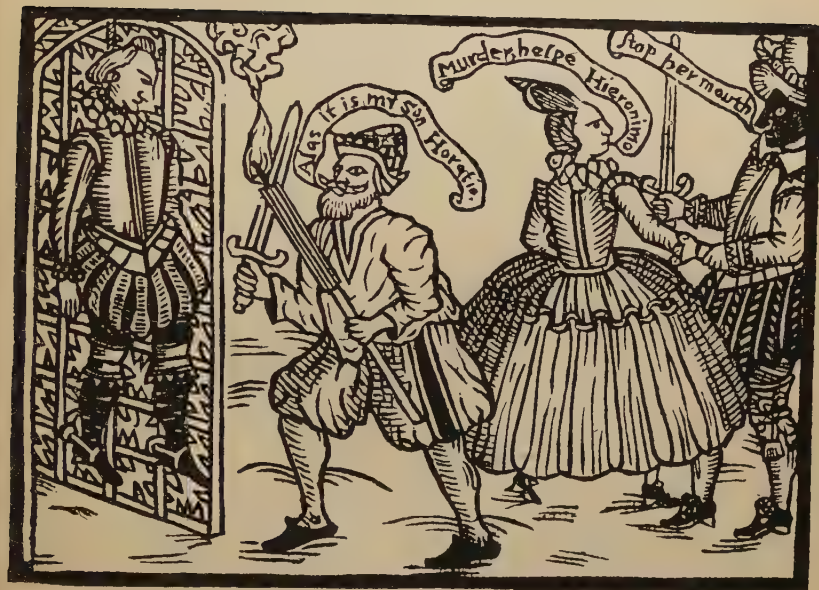 Alas it is my son Horatio,
Murder,helpe Hieronimo
Stop her mouth